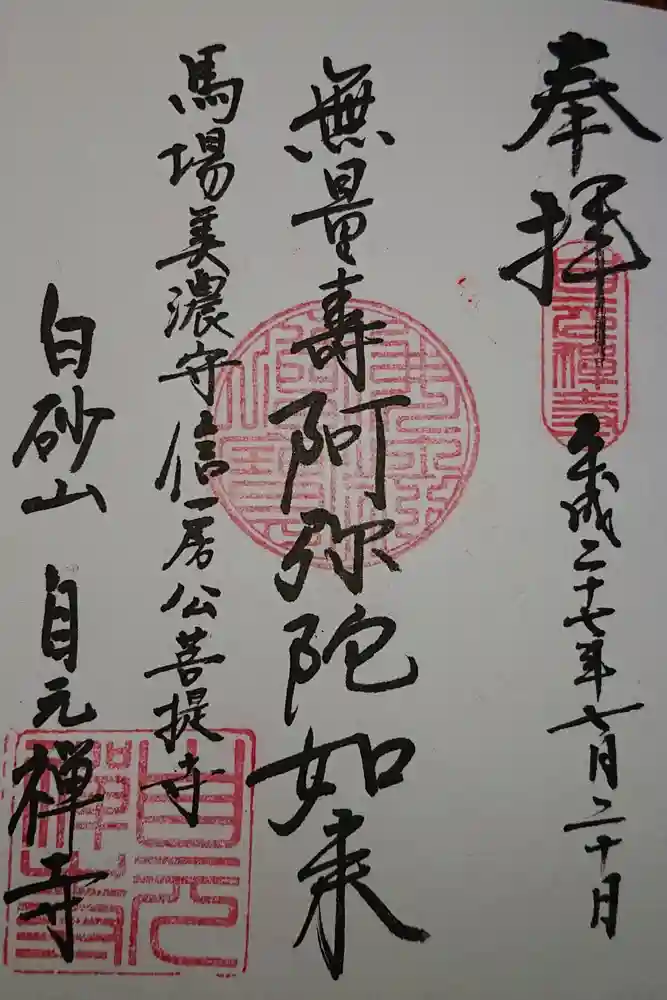 奉拝
平成二十七年七月二十日
無量壽阿弥陀如来
馬場美濃守信房公菩提寺
白砂山 自元禅寺
自元禅寺